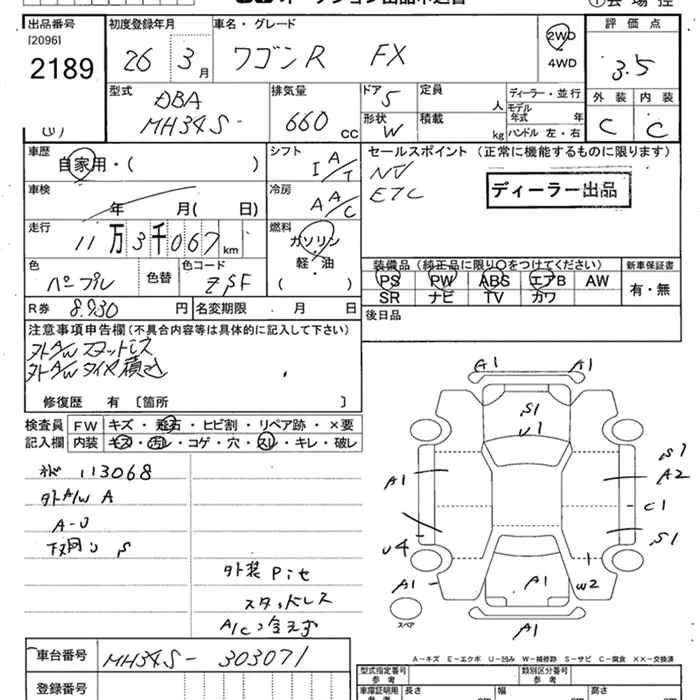 出品番号 初度登録年月 車名・グレード 評価点
[2096]
2189 26 3月 ワゴンR FX 2WD 3.5
4WD
型式 DBA MH34S- 排気量 660cc ドア 5 定員 人 ディーラー・並行 外装 内装
形状 W 積載 kg モデル年式 年 C C
ハンドル 左・右
車歴 自家用・( ) シフト IA/AT セールスポイント (正常に機能するものに限ります)
NV
ETC
ディーラー出品
車検 年 月( 日) 冷房 AA/AC
走行 11万3千067km 燃料 ガソリン
軽・油
( )
色 パープル 色替 色コード ZSF
装備品 (純正品に限り○をつけてください) 新車保証書
PS PW ABS エアB AW 有・無
SR ナビ TV カワ
R券 8.930円 名変期限 月 日 後日品
注意事項申告欄(不具合内容等は具体的に記入して下さい)
外A/Wスタットレス
外A/Wタイヤ積込
修復歴 有 [箇所 ]
検査員 FW キズ・飛石・ヒビ割・リペア跡・×要
記入欄 内装 キズ・汚レ・コゲ・穴・スリ・キレ・破レ
113068
外A/W A
A-U
下廻り S
外装Pit
スタッドレス
A/C
G1 A1
S1
U1
A1
S1
A2
C1
S1
U4
A1
A1
W2
スペア
A1
車台番号 MH34S-303071
A-キズ E-エクボ U-凹み W-補修跡 S-サビ C-腐食 XX-交換済
登録番号
型式指定番号 参考 類別区分番号 参考
車庫証明用 参考 長さ cm 幅 cm 高さ cm